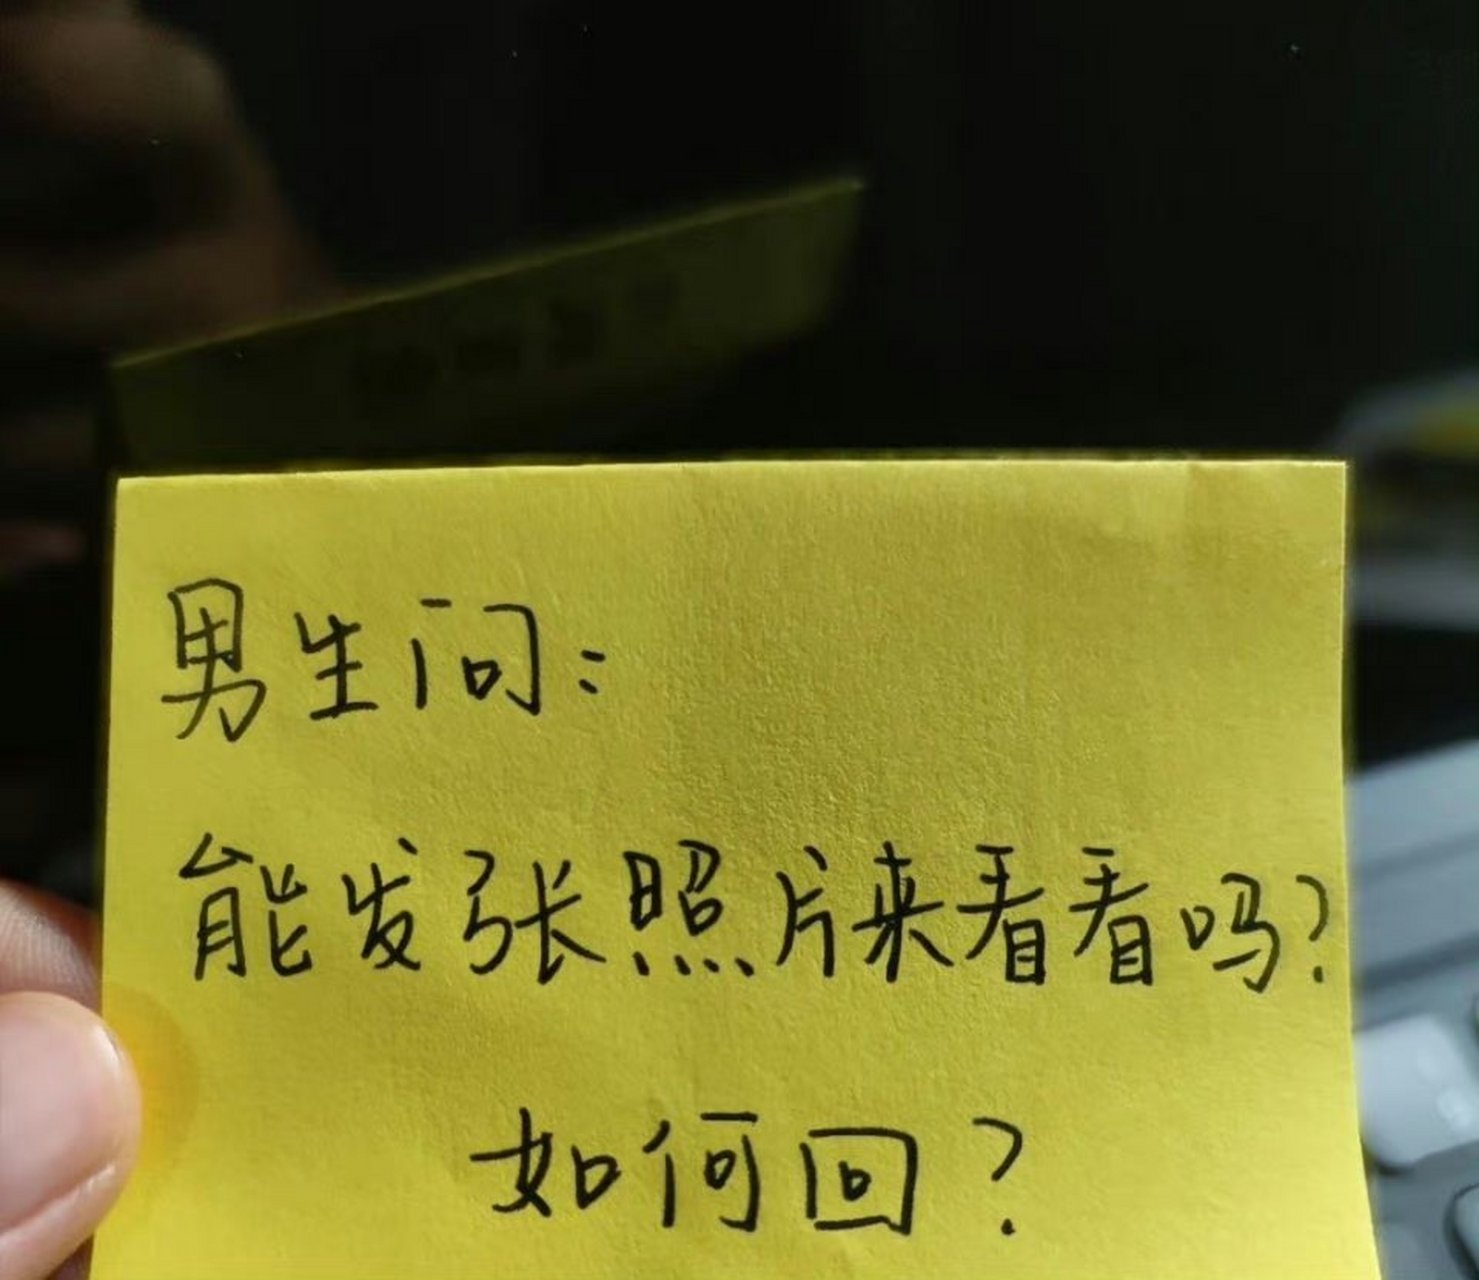 男生问:
能发张照片来看看吗?
如何回?